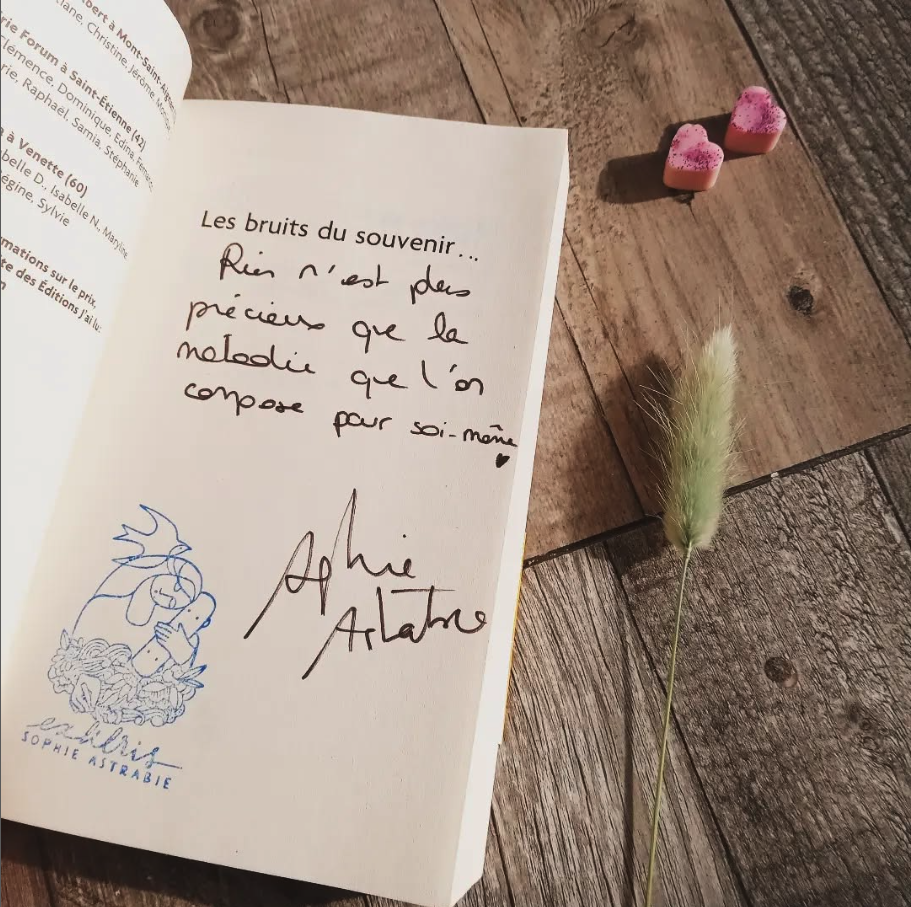 bert à Mont-Saint-Aignan
iane, Christine, Jérôme,
rie Forum à Saint-Étienne (42)
lémence, Dominique, Edina,
rie, Raphaël, Samia, Stéphanie
à Venette (60)
belle D., Isabelle N., Maryline
égine, Sylvie
rmations sur le prix,
te des Éditions J'ai lu:
n
Les bruits du souvenir...
Rien n'est plus
précieux que la
mélodie que l'on
compose pour soi-même
Sophie
Astrabie
ex-libris
SOPHIE ASTRABIE